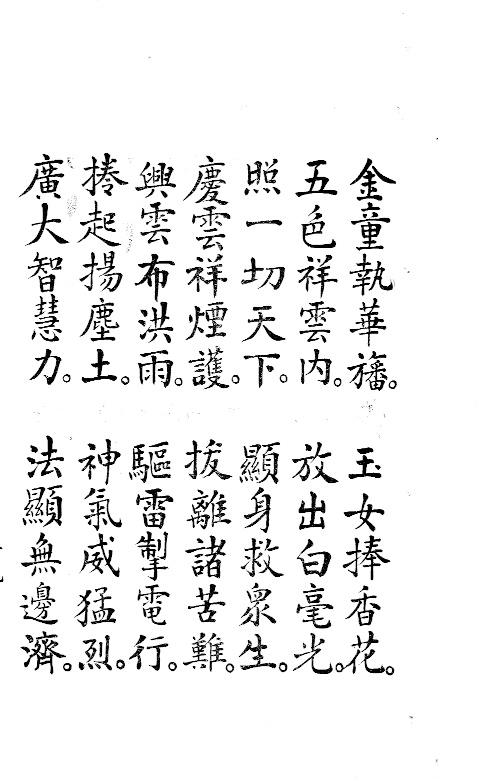 金童執華旛。玉女捧香花。
五色祥雲内。放出白毫光。
照一切天下。顯身救衆生。
慶雲祥煙護。拔離諸苦難。
興雲布洪雨。驅雷掣電行。
捲起揚塵土。神氣威猛烈。
廣大智慧力。法顯無邊濟。